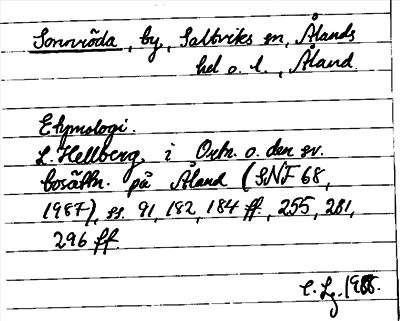 Sonnröda, by, Saltviks sn, Ålands
hel o. l., Åland.
Etymologi.
L. Hellberg, i Ortn. o. den sv.
bosättn. på Åland (SNF 68,
1987), ss. 91, 182, 184 ff., 255, 281,
296 ff.
C. Lg. 1988.